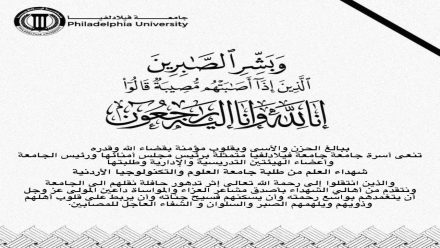 جامعة فيلادلفيا
Philadelphia University
وَبَشِّرِ الصَّابِرِينَ
الَّذِينَ إِذَا أَصَابَتْهُم مُّصِيبَةٌ قَالُوا
إِنَّا لِلَّهِ وَإِنَّا إِلَيْهِ رَاجِعُونَ
ببالغ الحزن والأسى وبقلوب مؤمنة بقضاء الله وقدره
تنعى أسرة جامعة جامعة فيلادلفيا متمثلة برئيس مجلس أمنائها ورئيس الجامعة
وأعضاء الهيئتين التدريسية والإدارية وطلبتها
شهداء العلم من طلبة جامعة العلوم والتكنولوجيا الأردنية
والذين انتقلوا إلى رحمة الله تعالى إثر تدهور حافلة نقلهم الى الجامعة
ونتقدم من أهالي الشهداء بأصدق مشاعر العزاء والمواساة داعين المولى عز وجل
أن يتغمدهم بواسع رحمته وأن يسكنهم فسيح جناته وأن يربط على قلوب أهلهم
وذويهم ويلهمهم الصبر والسلوان و الشفاء العاجل للمصابين.